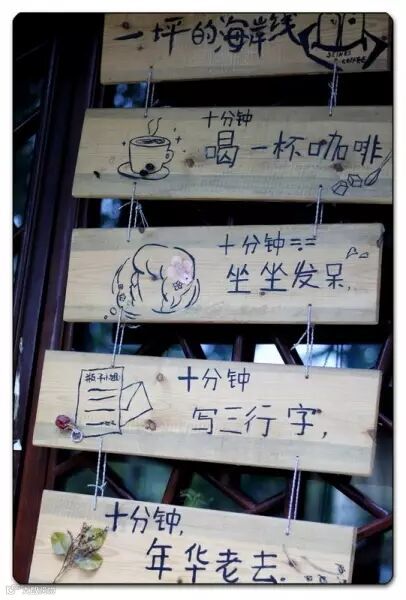 一坪的海岸线
十分钟
喝一杯咖啡
十分钟
坐坐发呆,
瓶子小姐
十分钟
写三行字,
十分钟,
年华老去.